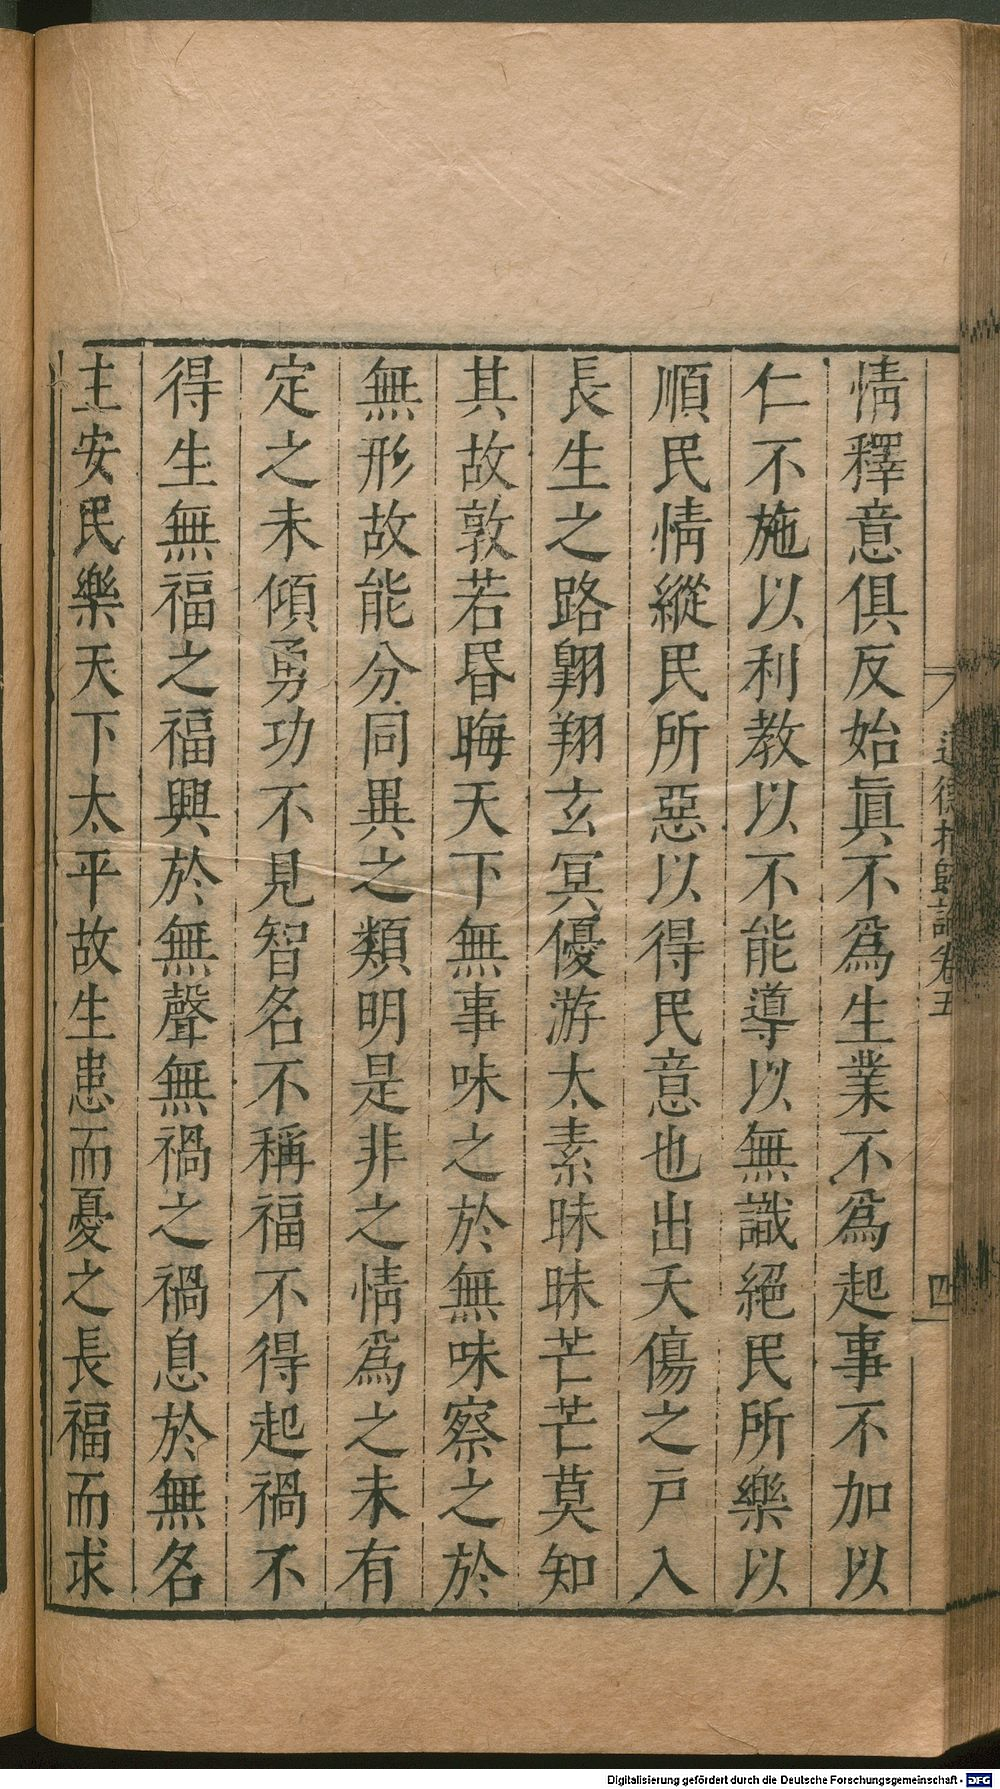 道德指歸論卷五
四
情釋意俱反始眞不爲生業不爲起事不加以
仁不施以利教以不能導以無識絕民所樂以
順民情縱民所惡以得民意也出夭傷之戸入
長生之路翺翔玄冥優游太素昧昧芒芒莫知
其故敦若昬晦天下無事味之於無味察之於
無形故能分同異之類明是非之情爲之未有
定之未傾勇功不見智名不稱福不得起禍不
得生無福之福興於無聲無禍之禍息於無名
主安民樂天下太平故生患而憂之長福而求
Digitalisierung gefördert durch die Deutsche Forschungsgemeinschaft - DFG